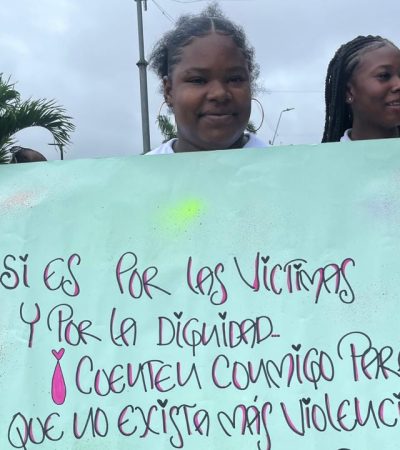 SI ES POR LAS VICTIMAS
Y POR LA DIGUIDAD..
¡CUENTEN CONMIGO PARA
QUE NO EXISTA MÁS VIOLENCI